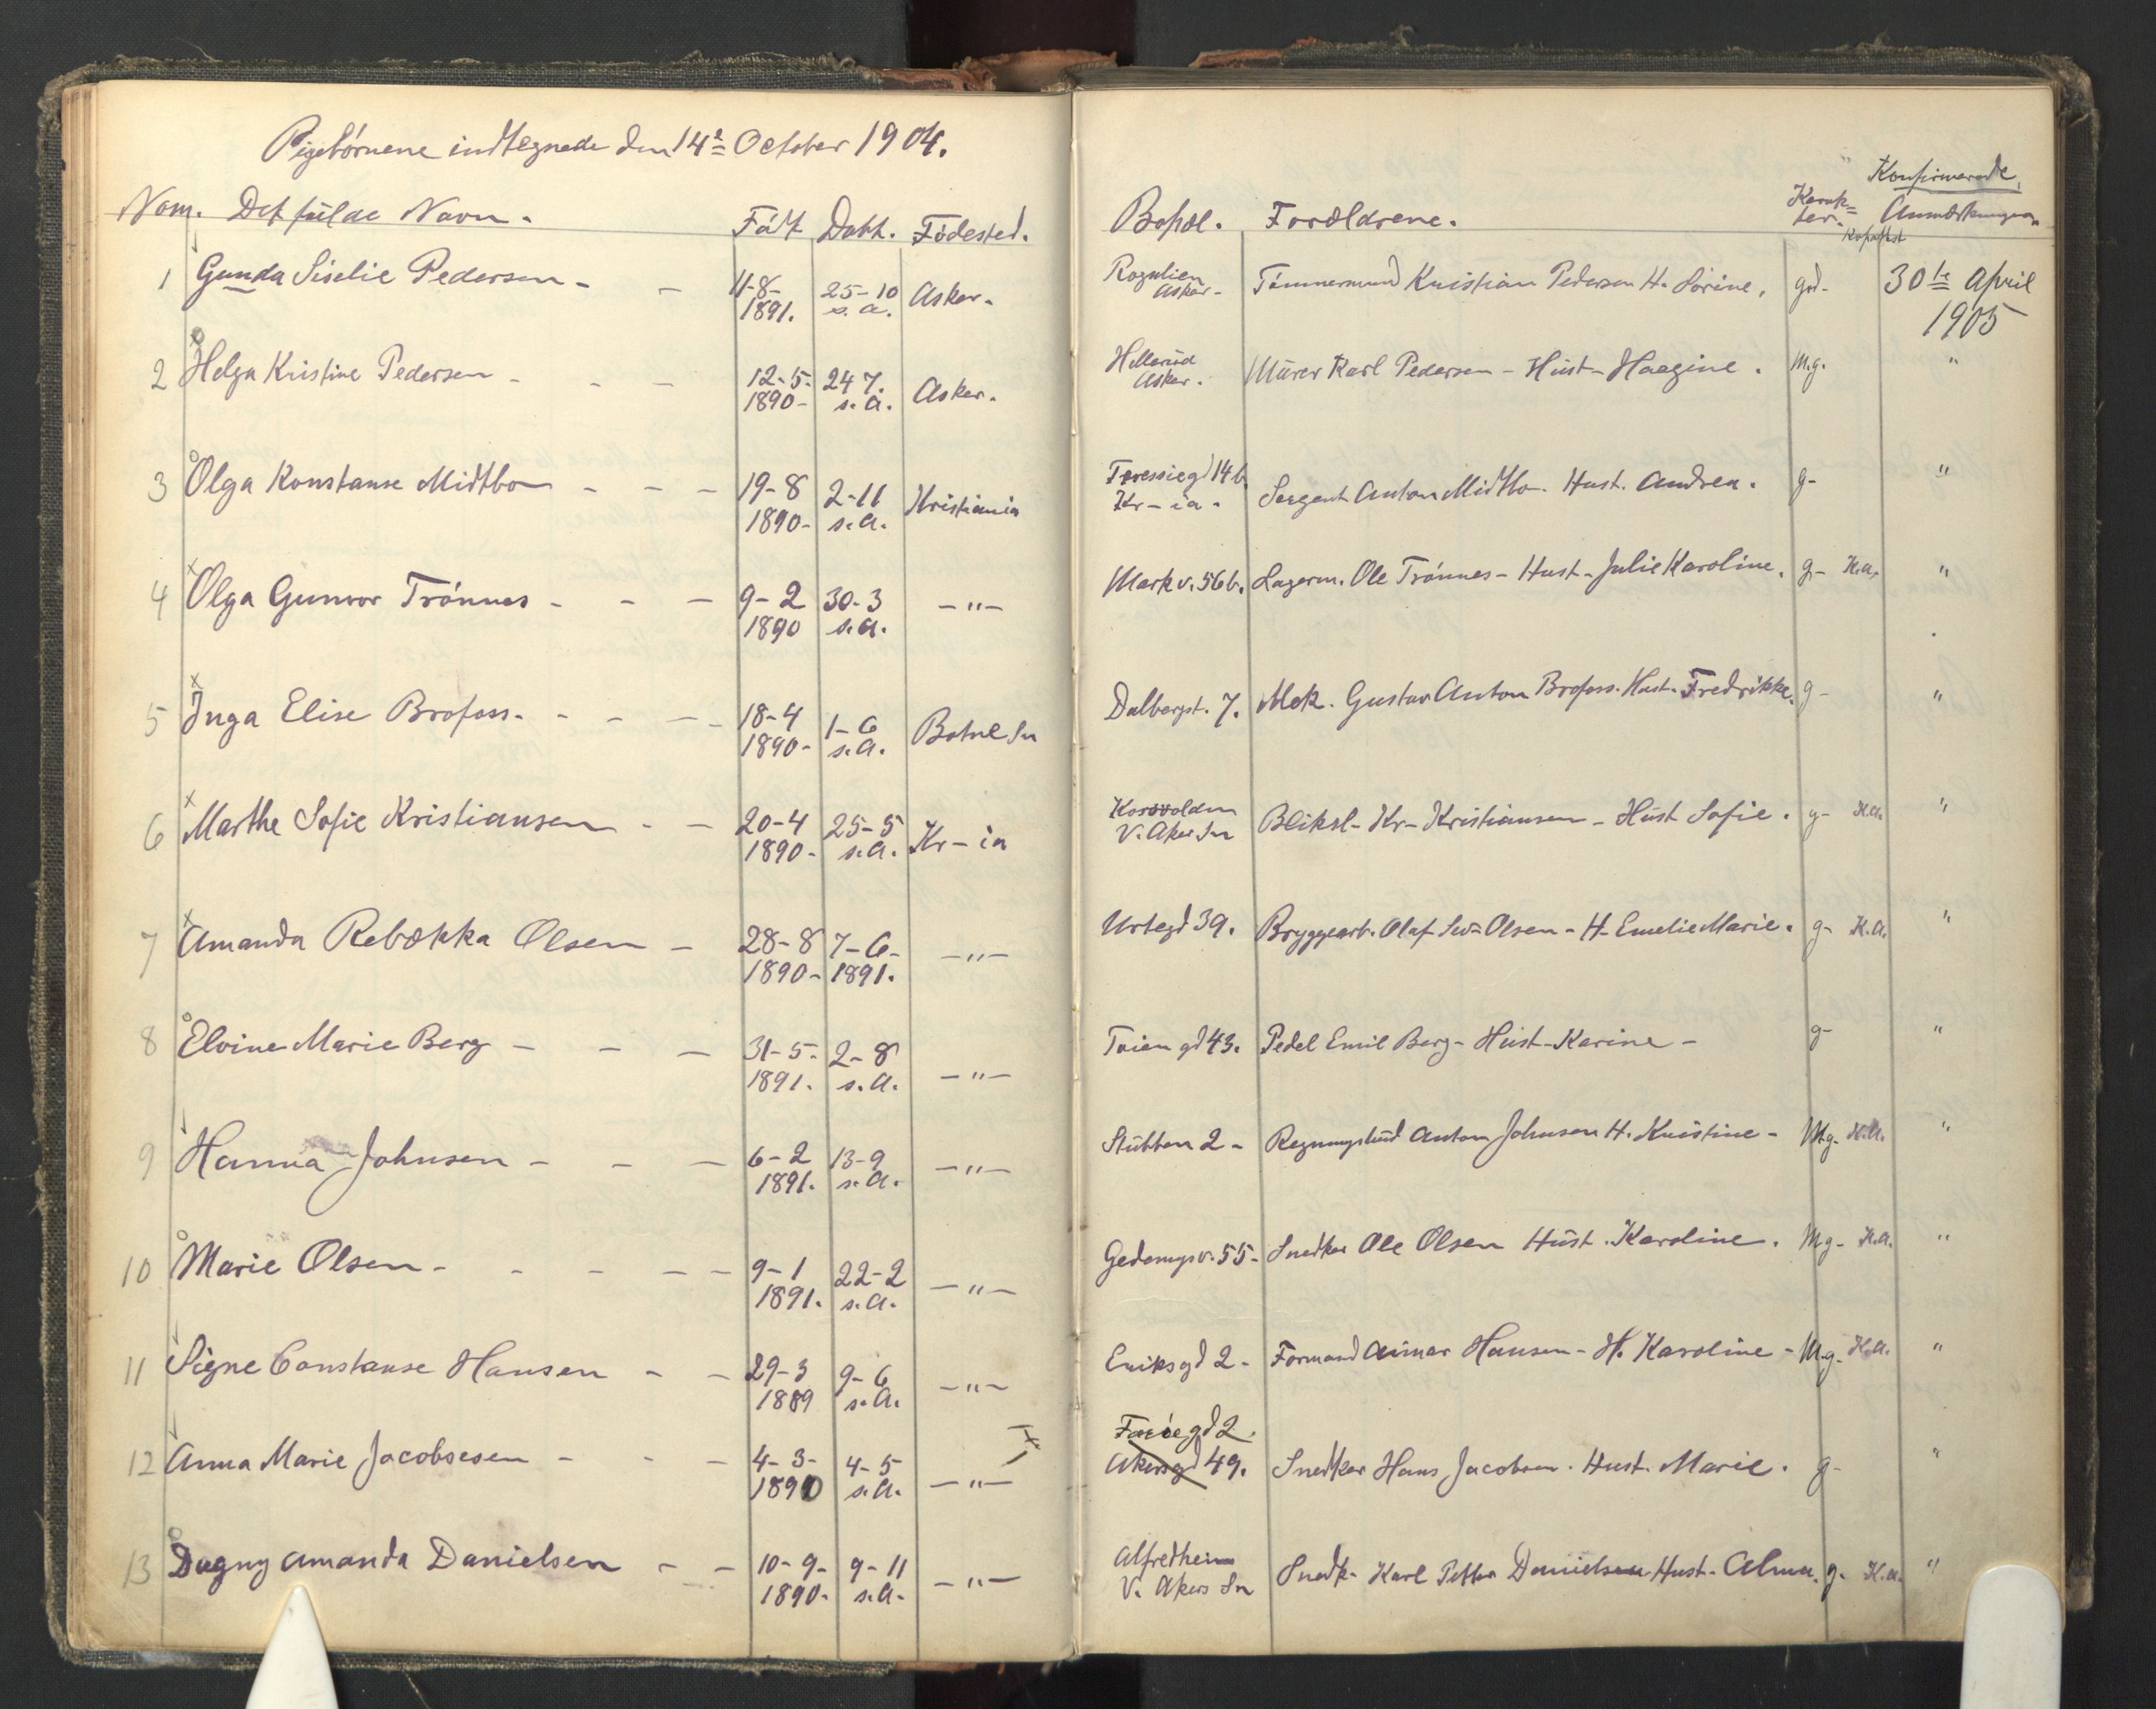 Pigebörnene indtegnede den 14de October 1904.
Nom. Det fulde Navn. Födt Döbt. Födested.
1 Gunda Siselie Pedersen - - 11-8- 25-10 Asker.
1891. s. a.
2 Helga Kristine Pedersen - - - 12-5- 24 7. Asker.
1890- s. a.
3 Olga Konstanse Midtbo - - - 19-8 2-11 Kristiania
1890- s.a.
4 Olga Gunvor Trönnes - - - 9-2 30-3 -"-
1890 s.a.
5 Inga Elise Brofoss. - - - - 18-4 1-6 Botne Sn
1890- s.a.
6 Marthe Sofie Kristiansen - - 20-4 25-5 Kr-ia
1890- s.a.
7 Amanda Rebækka Olsen - 28-8 7-6- -"-
1890- 1891.
8 Elvine Marie Berg - - - 31-5- 2-8 -"-
1891. s.a.
9 Hanna Johnsen - - - 6-2 13-9 -"-
1891. s.a.
10 Marie Olsen - - - - - - 9-1 22-2 -"-
1891. s.a.
11 Signe Constanse Hansen - - 29-3 9-6 -"-
1889 s.a.
12 Anna Marie Jacobsesen - - - 4-3- 4-5 -"-
1890 s.a.
13 Dagny Amanda Danielsen - - 10-9- 9-11 -"-
1890- s.a.
Konfirmerede
Bopæl. Forældrene. Karak= ter. Anmærkninger
Asker- Tömmermand Kristian Pedersen H. Sörine. gd- 30te April
1905
Hellerud
Asker. Murer Karl Pedersen - Hust- Haagine. M.g. "
14 b.
Kr-ia. Sergent Anton Midtbo. Hust. Andrea. g- "
Markv. 56 b. Lagerm. Ole Trönnes - Hust- Julie Karoline. g- K.a. "
Dalbergst. 7. Mek. Gustav Anton Brofoss. Hust. Fredrikke. g- "
Korsvolden
V. Aker Sn Bliksl- Kr- Kristiansen - Hust Sofie. g- K.a. "
Urtegd 39. Bryggearb. Olaf Olsen - H- Emelie Marie. g- K.a. "
Toiengd 43. Pedel Emil Berg - Hust- Karine - g- "
Stubben 2 - Regningsbud Anton Johnsen H. Kristine - Mg- K.a. "
55- Snedker Ole Olsen Hust. Karoline. Mg- K.a. "
Eriksgd 2 - Formand Hansen - H. Karoline - M.g- K.a. "
gd 2.
Akersgd 49. Snedker Hans Jacobsen. Hust. Marie. g- "
Alfredheim
V. Akers Sn Snedk- Karl Petter Danielsen Hust- Alma. g- K.a. "